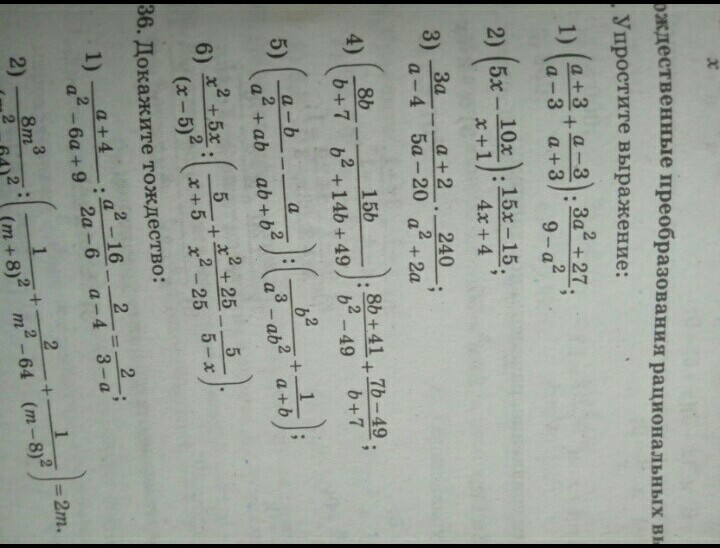 x
ождественные преобразования рациональных вы
. Упростите выражение:
1) ((a+3)/(a−3) + (a−3)/(a+3)) : (3a² + 27)/(9−a²);
2) (5x − 10x/(x+1)) : (15x−15)/(4x+4);
3) 3a/(a−4) − (a+2)/(5a−20) · 240/(a² + 2a);
4) (8b/(b+7) − 15b/(b² + 14b + 49)) : (8b+41)/(b² − 49) + (7b−49)/(b+7);
5) ((a−b)/(a² + ab) − a/(ab + b²)) : (b²/(a³ − ab²) + 1/(a+b));
6) (x² + 5x)/(x−5)² : (5/(x+5) + (x² + 25)/(x² − 25) − 5/(5−x)).
36. Докажите тождество:
1) (a+4)/(a² − 6a + 9) : (a² − 16)/(2a−6) − 2/(a−4) = 2/(3−a);
2) 8m³/(m² − 64)² : (1/(m+8)² + 2/(m² − 64) + 1/(m−8)²) = 2m.